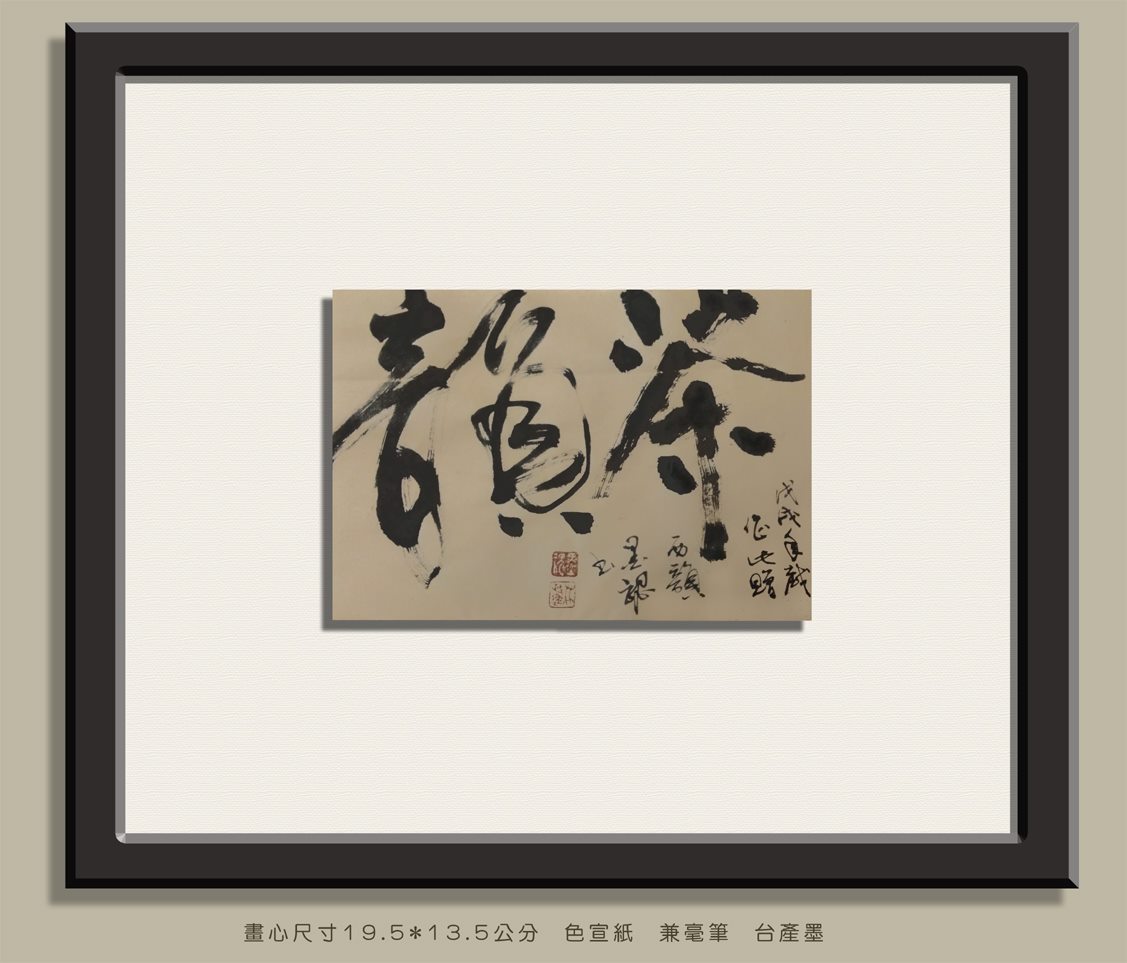 茶韻
戊戌年歲
作此贈
西韻
墨緣
書
畫心尺寸19.5*13.5公分 色宣紙 兼毫筆 台產墨